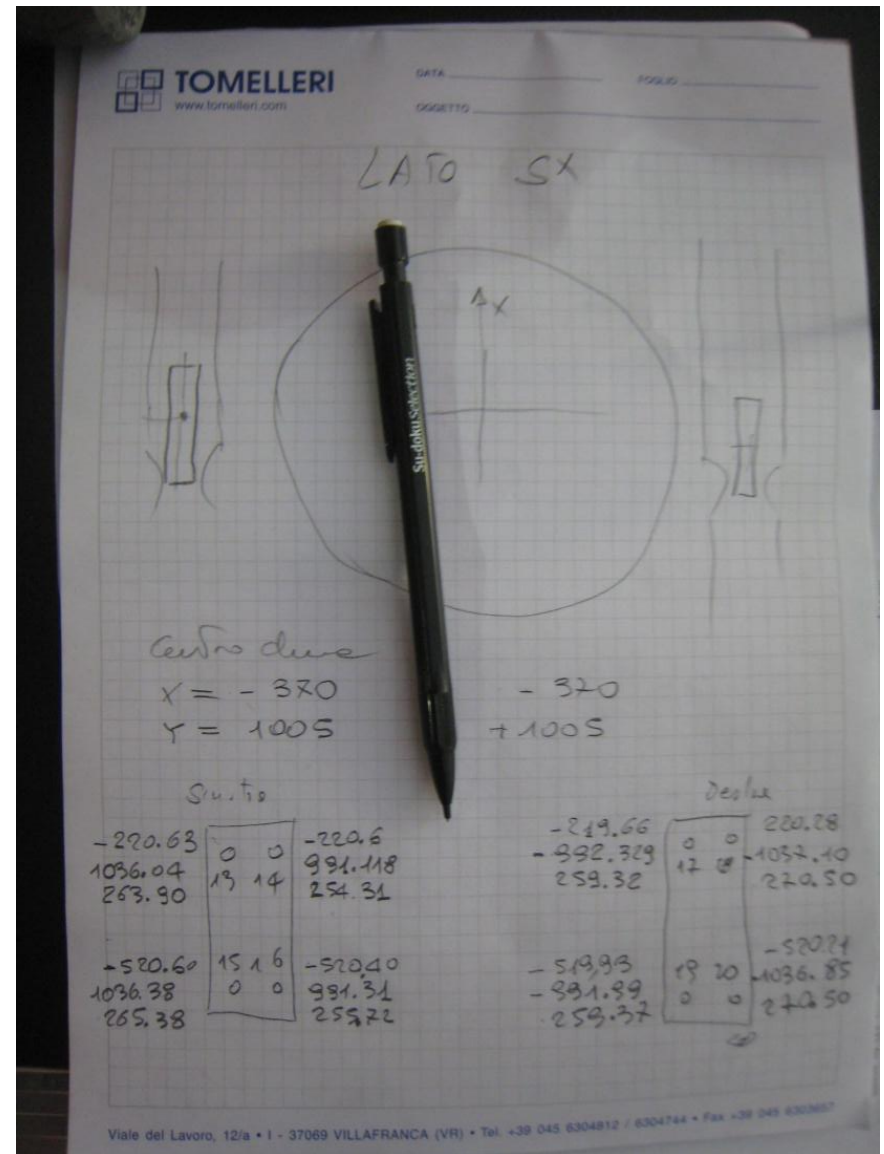 TOMELLERI
www.tomelleri.com
DATA
FOGLIO
OGGETTO
LATO SX
X
Su-doku Selection
Centro
X = - 370
- 370
Y = 1005
+ 1005
-220.63
1036.04
263.90
13 14
-220.6
991.118
254.31
-520.60
1036.38
265.38
15 16
-520,40
991.31
255,72
-219.66
-992.329
259.32
220.28
-1037.10
270.50
-519,93
-991.99
259.37
19 20
-520.21
-1036.85
270.50
Viale del Lavoro, 12/a • I - 37069 VILLAFRANCA (VR) • Tel. +39 045 6304812 / 6304744 • Fax +39 045 6303657